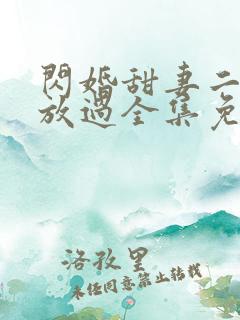 閃婚甜妻二
放過全集免
洛孜里
未任同意禁止转载